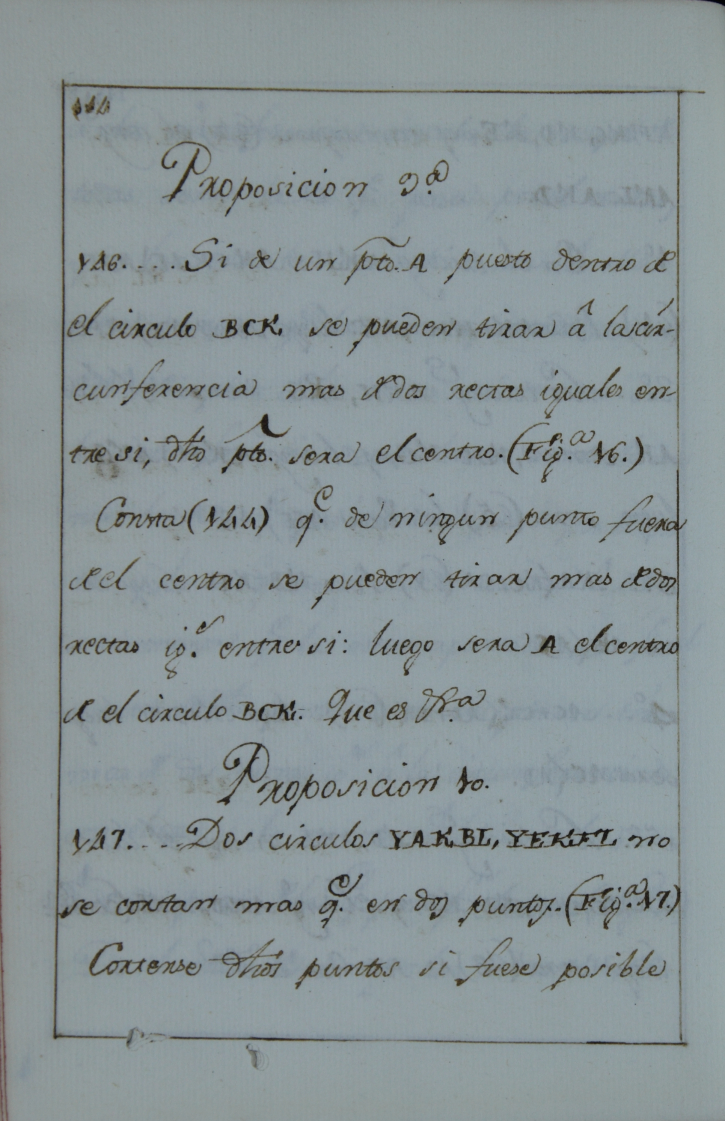 114
Proposicion 9.ª
146.... Si de un pto. A puesto dentro de
el circulo BCK. se pueden tirar â la cir-
cunferencia mas de dos rectas iguales en-
tre si, dho pto. sera el centro. (Fig.ª 16.)
Consta (144) q.e de ningun punto fuera
de el centro se pueden tirar mas de dos
rectas ig.s entre si: luego sera A el centro
de el circulo BCK. Que es
Proposicion 10.
147.... Dos circulos YAKBL, YEKFL no
se cortan mas q.e en dos puntos. (Fig.ª 17.)
Cortense dhos puntos si fuese posible